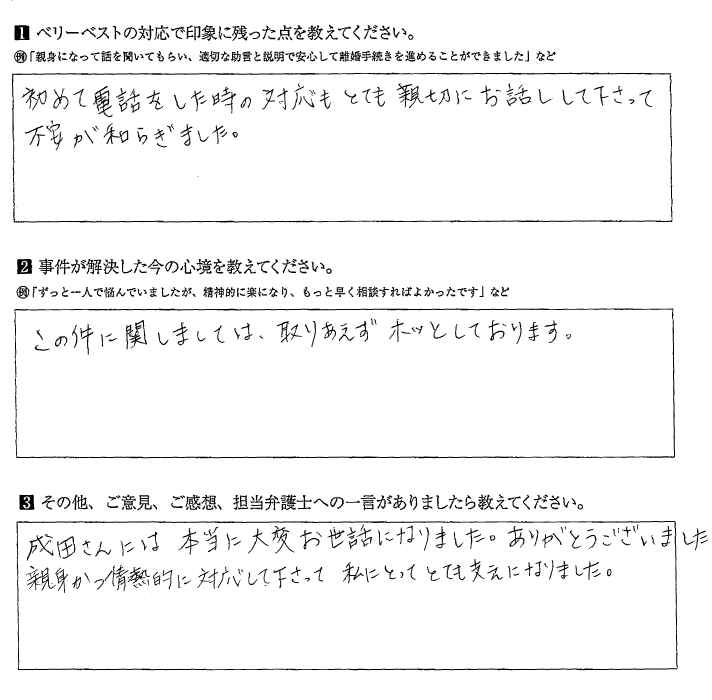 1 ベリーベストの対応で印象に残った点を教えてください。
例「親身になって話を聞いてもらい、適切な助言と説明で安心して離婚手続きを進めることができました」など
初めて電話をした時の対応もとても親切にお話しして下さって
不安が和らぎました。
2 事件が解決した今の心境を教えてください。
例「ずっと一人で悩んでいましたが、精神的に楽になり、もっと早く相談すればよかったです」など
この件に関しましては、取りあえずホッとしております。
3 その他、ご意見、ご感想、担当弁護士への一言がありましたら教えてください。
成田さんには本当に大変お世話になりました。ありがとうございました
親身かつ情熱的に対応して下さって 私にとってとても支えになりました。